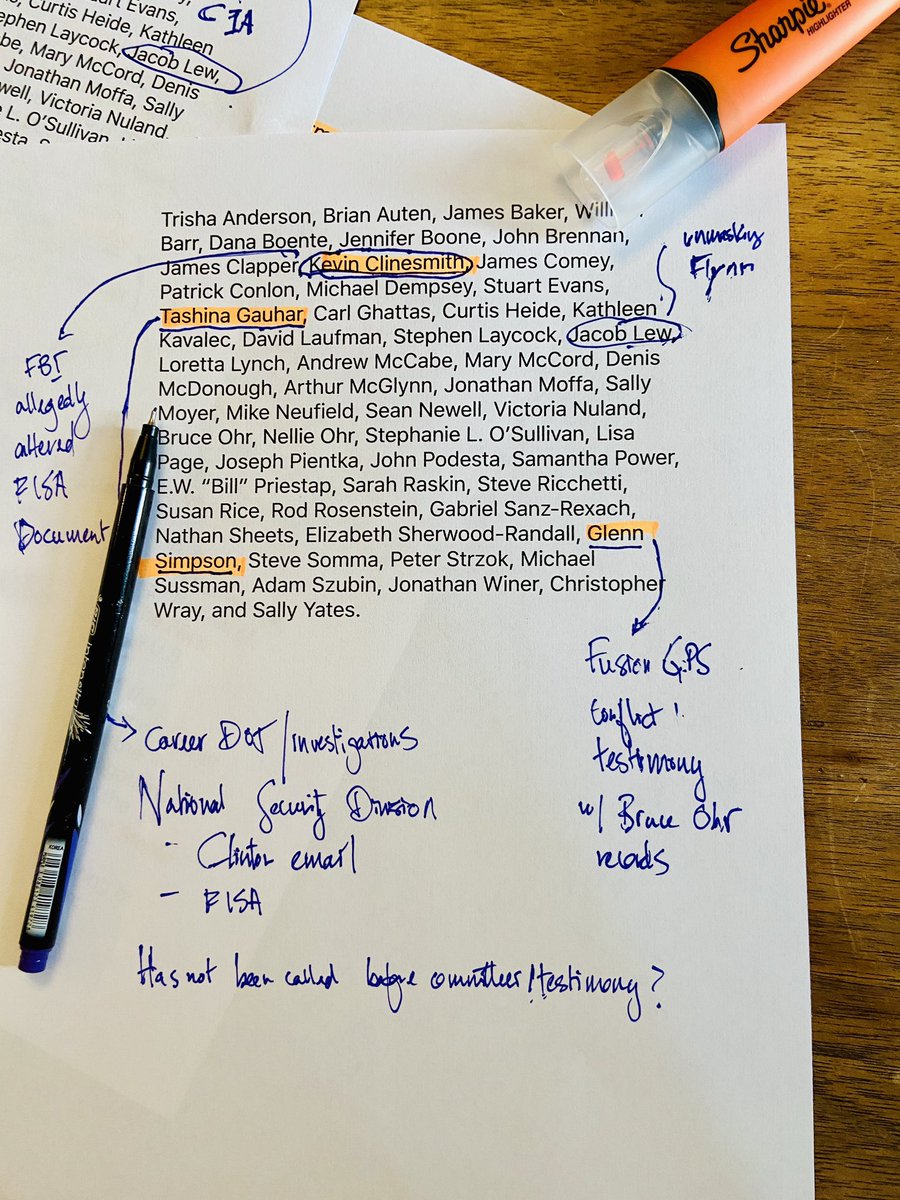 Curtis Heide, Kathleen
Stephen Laycock, Jacob Lew,
Mary McCord, Denis
Jonathan Moffa, Sally
Victoria Nuland,
L. O'Sullivan,
CIA
Sharpie
HIGHLIGHTER
Trisha Anderson, Brian Auten, James Baker,
Barr, Dana Boente, Jennifer Boone, John Brennan,
James Clapper, Kevin Clinesmith, James Comey,
Patrick Conlon, Michael Dempsey, Stuart Evans,
Tashina Gauhar, Carl Ghattas, Curtis Heide, Kathleen
Kavalec, David Laufman, Stephen Laycock, Jacob Lew,
Loretta Lynch, Andrew McCabe, Mary McCord, Denis
McDonough, Arthur McGlynn, Jonathan Moffa, Sally
Moyer, Mike Neufield, Sean Newell, Victoria Nuland,
Bruce Ohr, Nellie Ohr, Stephanie L. O'Sullivan, Lisa
Page, Joseph Pientka, John Podesta, Samantha Power,
E.W. “Bill” Priestap, Sarah Raskin, Steve Ricchetti,
Susan Rice, Rod Rosenstein, Gabriel Sanz-Rexach,
Nathan Sheets, Elizabeth Sherwood-Randall, Glenn
Simpson, Steve Somma, Peter Strzok, Michael
Sussman, Adam Szubin, Jonathan Winer, Christopher
Wray, and Sally Yates.
unmasking
Flynn
FBI
allegedly
altered
FISA
Document
Fusion GPS
conflict
testimony
w/ Bruce Ohr
records
Career DOJ/investigations
National Security Division
- Clinton email
- FISA
Has not been called before committees/testimony?
KOREA